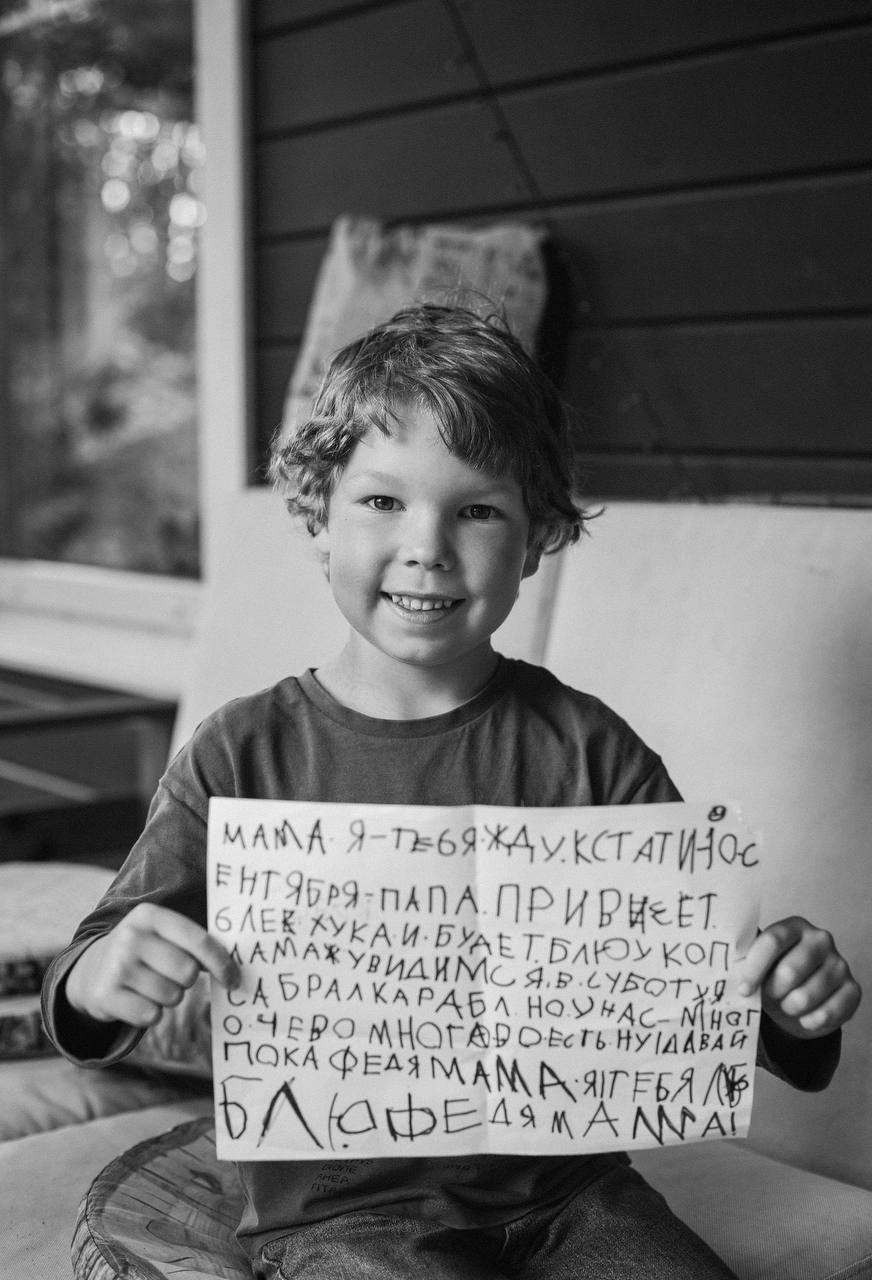 МАМА. Я-ТЕБЯ ЖДУ. КСТАТИ 10-С
ЕНТЯБРЯ-ПАПА. ПРИВ ЕЕТ.
ХУКА. И. БУДЕТ. БЛЮУ КОП
МАМА УВИДИМСЯ. В. СУБОТУ. Я.
САБРАЛ КАРАБЛ. НО. У НАС- МНОГ
О. ЧЕВО МНОГАВО ЕСТЬ. НУ ДАВАЙ
ПОКА ФЕДЯ МАМА. Я ТЕБЯ Л
БЛЮ ФЕДЯ МАМА!